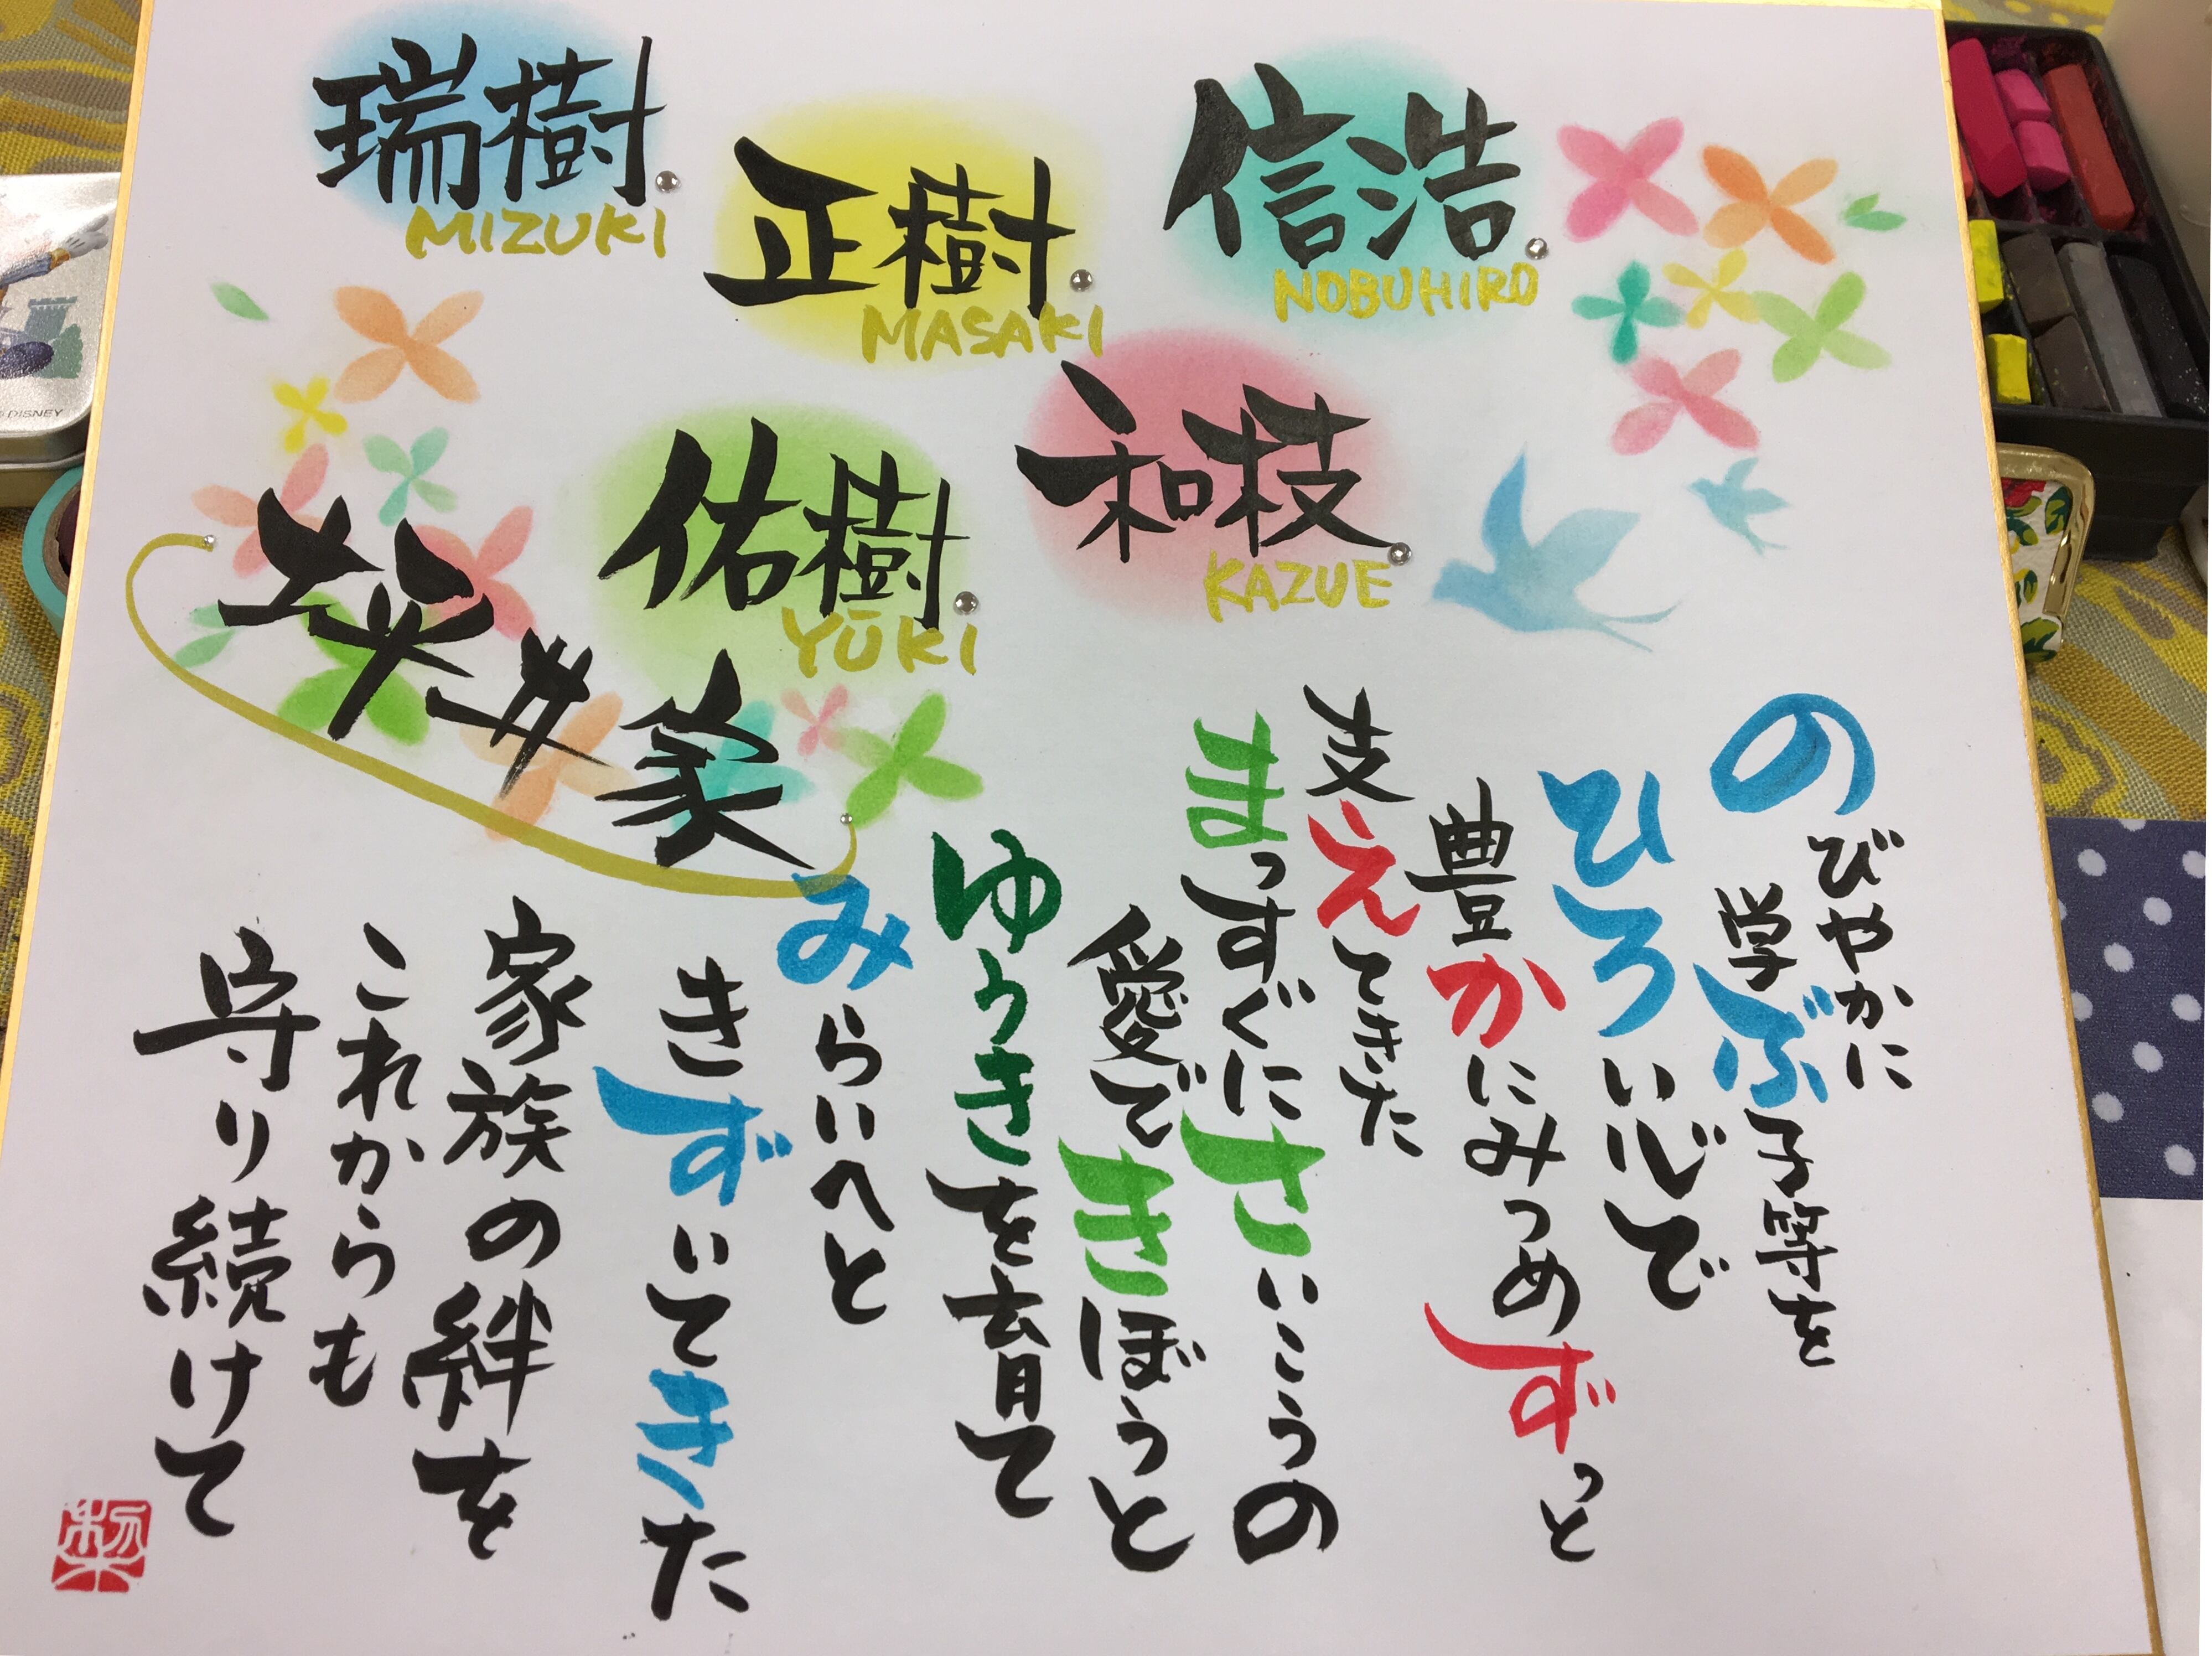 信浩
NOBUHIRO
和枝
KAZUE
正樹
MASAKI
佑樹
YŪKI
瑞樹
MIZUKI
井家
のびやかに
学ぶ子等を
ひろい心で
豊かにみつめずっと
支えてきた
まっすぐにさいこうの
愛できぼうと
ゆうきを育て
みらいへと
きずいてきた
家族の絆を
これからも
守り続けて
DISNEY